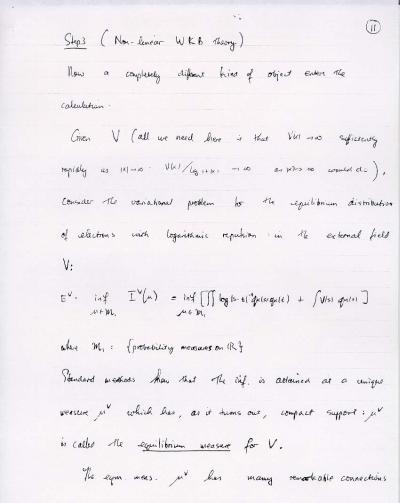 11
Step 3 ( Non-linear WKB Theory)
Now a completely different kind of object enters the
calculation.
Given V (all we need here is that V(x) → ∞ sufficiently
rapidly as |x| → ∞ V(x)/log 1+|x| → ∞ as |x| → ∞ would do),
consider the variational problem for the equilibrium distribution
of electrons with logarithmic repulsion in the external field
V:
E^V = inf_{μ∈M_1} I^V(μ) = inf_{μ∈M_1} [∬ log|s-t|^{-1} dμ(s) dμ(t) + ∫ V(s) dμ(s)]
where M_1 = {probability measures on ℝ}
Standard methods show that the inf. is attained at a unique
measure μ^V which has, as it turns out, compact support: μ^V
is called the equilibrium measure for V.
The eqm meas. μ^V has many remarkable connections